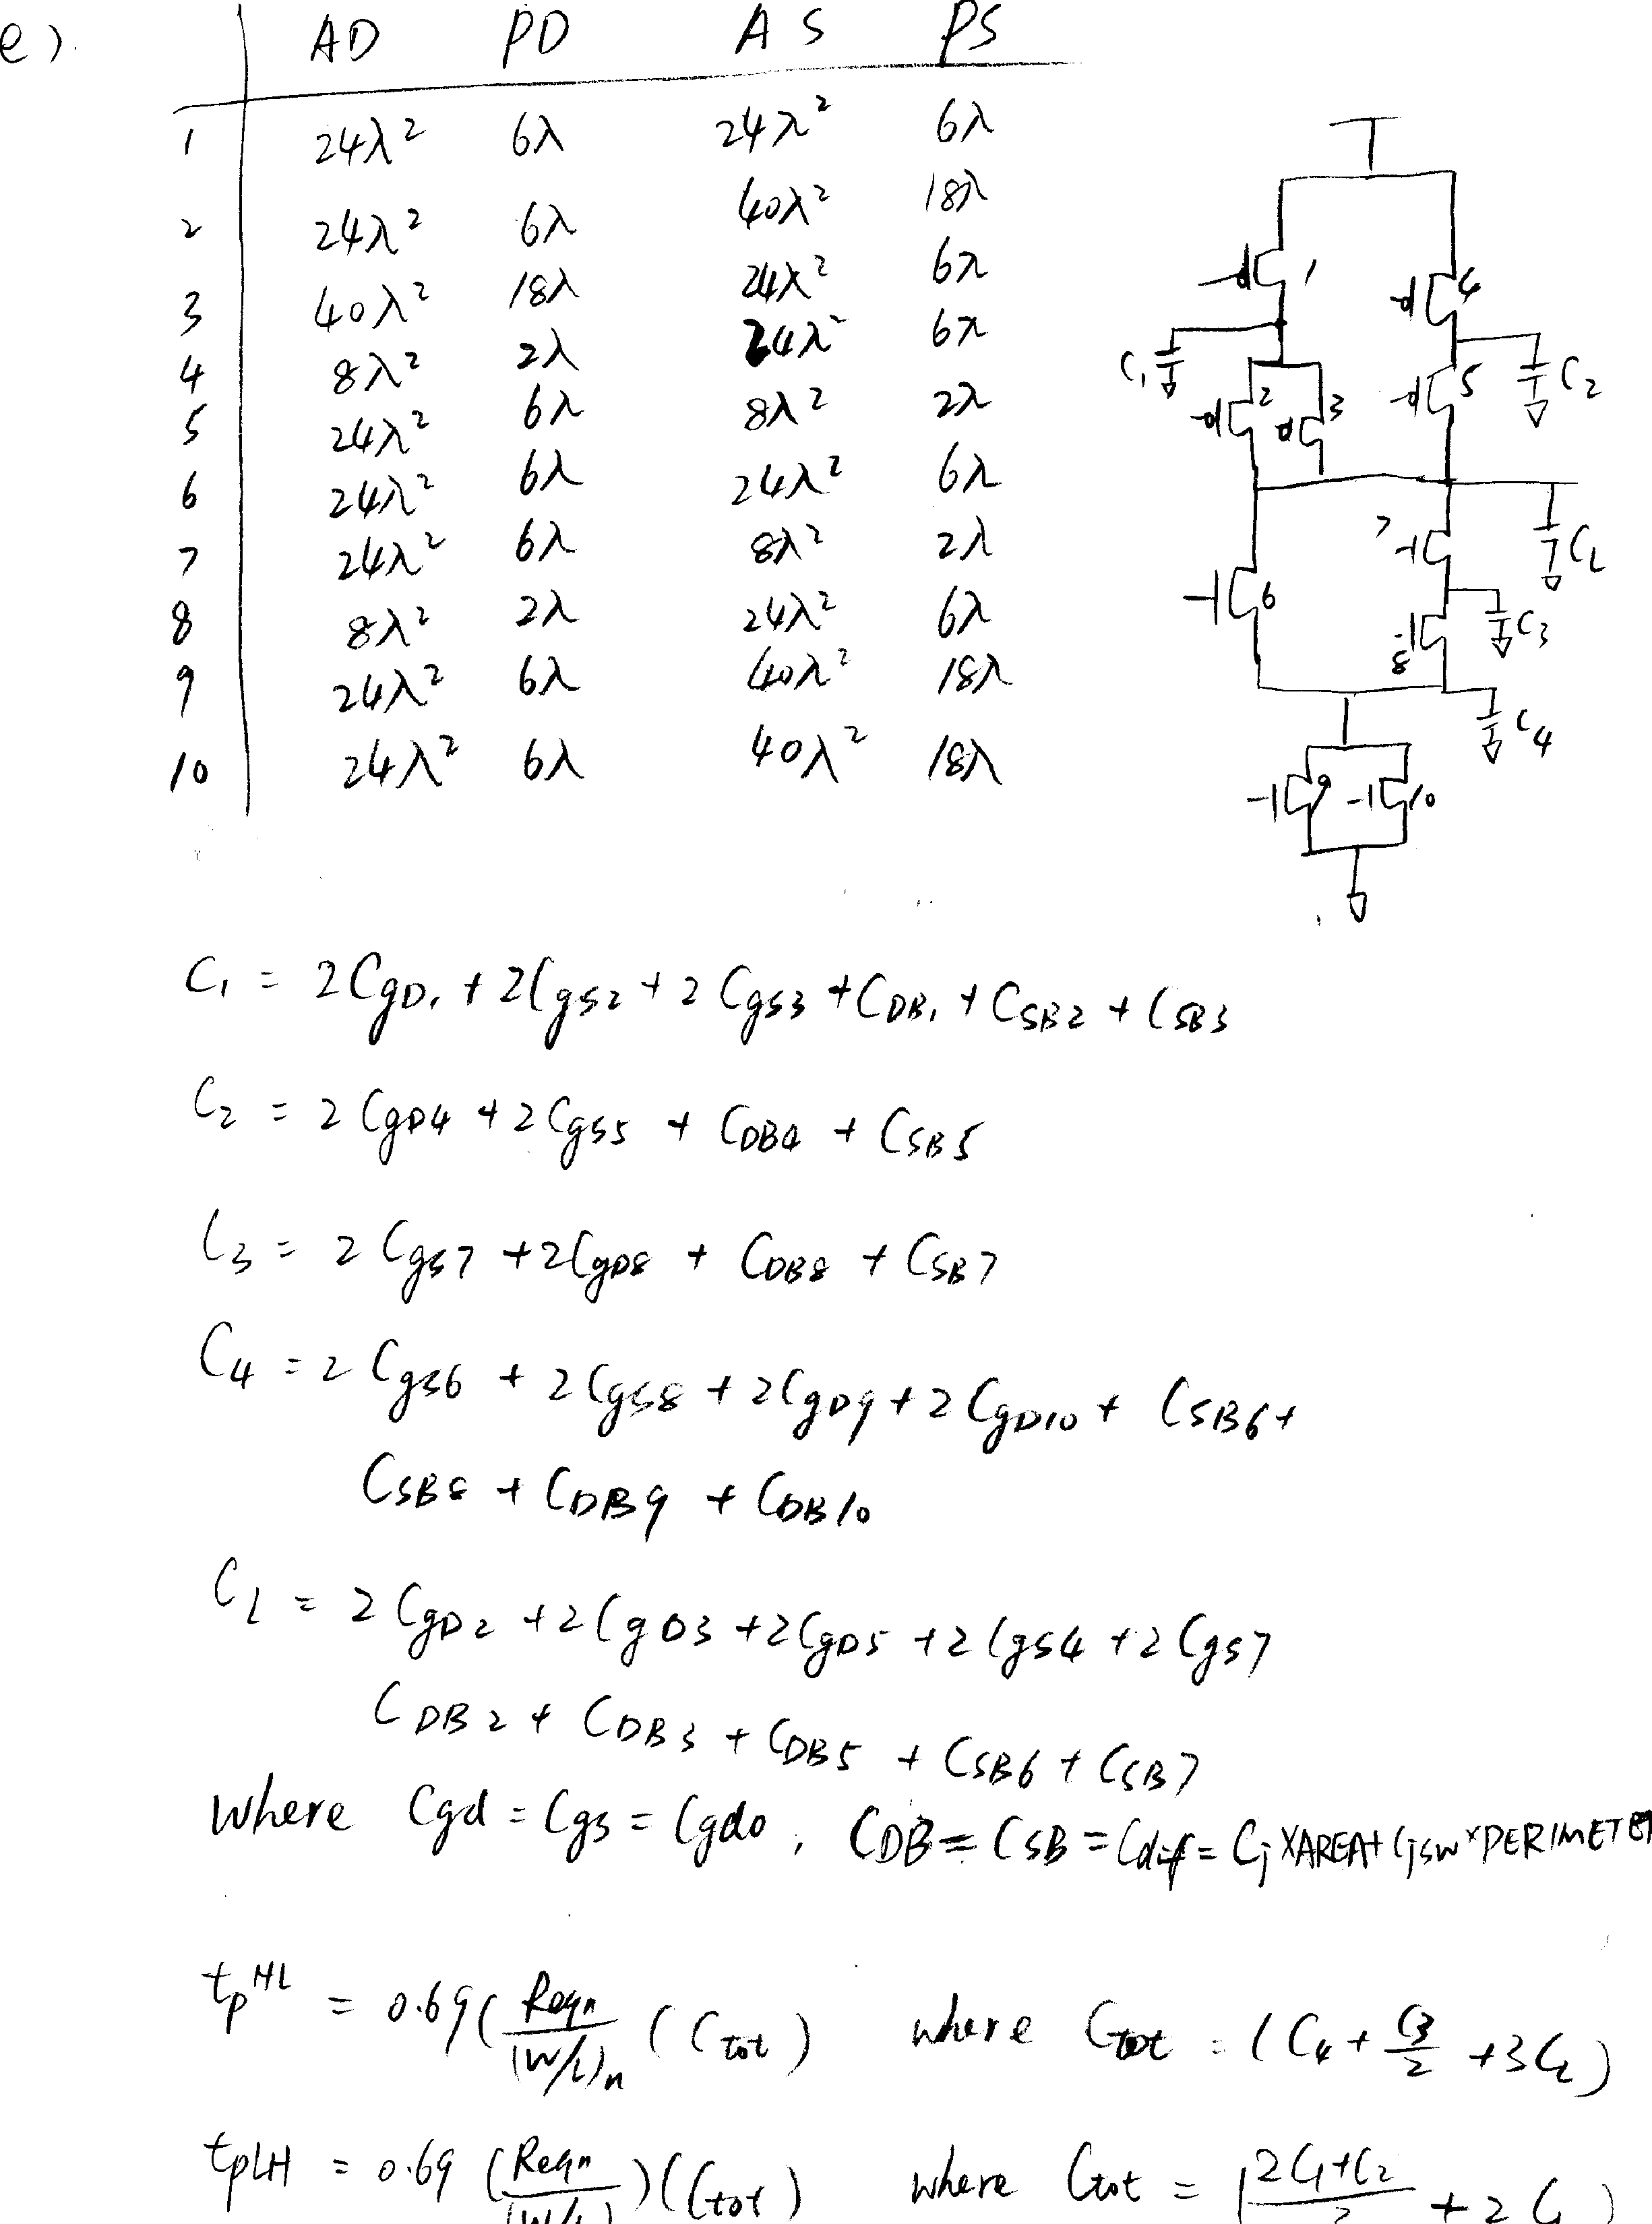 e).
AD PD AS PS
1 24λ² 6λ 24λ² 6λ
2 24λ² 6λ 40λ² 18λ
3 40λ² 18λ 24λ² 6λ
4 8λ² 2λ 24λ² 6λ
5 24λ² 6λ 8λ² 2λ
6 24λ² 6λ 24λ² 6λ
7 24λ² 6λ 8λ² 2λ
8 8λ² 2λ 24λ² 6λ
9 24λ² 6λ 40λ² 18λ
10 24λ² 6λ 40λ² 18λ
1 4
C1 2 3 5 C2
7 CL
6 C3
8
C4
9 10
C1 = 2CgD1 + 2Cgs2 + 2Cgs3 + CDB1 + CSB2 + CSB3
C2 = 2CgD4 + 2Cgs5 + CDB4 + CSB5
C3 = 2Cgs7 + 2CgD8 + CDB8 + CSB7
C4 = 2Cgs6 + 2Cgs8 + 2CgD9 + 2CgD10 + CSB6 +
CSB8 + CDB9 + CDB10
CL = 2CgD2 + 2CgD3 + 2CgD5 + 2Cgs4 + 2Cgs7
CDB2 + CDB3 + CDB5 + CSB6 + CSB7
Where Cgd = Cgs = Cgdo, CDB = CSB = Cdif = Cj×AREA + Cjsw×PERIMETER
tpHL = 0.69(Reqn/(W/L)n (Ctot) where Ctot = (C4 + C3/2 + 3CL)
tpLH = 0.69 (Reqn/(W/L))(Ctot) where Ctot = (2C1+C2 + 2CL)